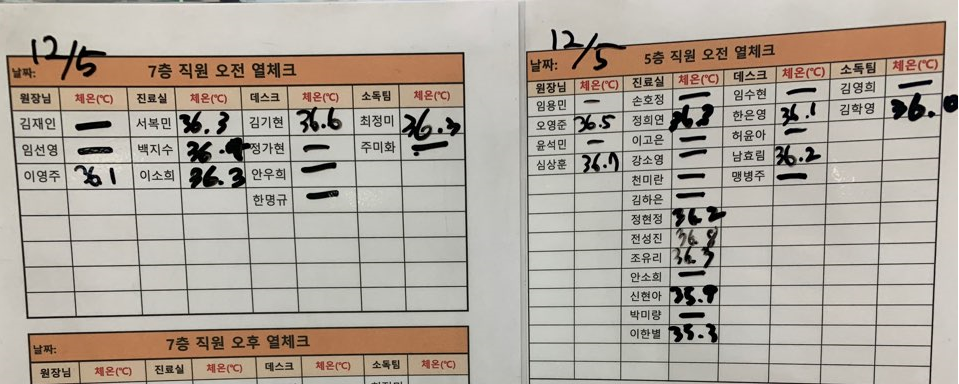 12/5
날짜: 7층 직원 오전 열체크
원장님 체온(℃) 진료실 체온(℃) 데스크 체온(℃) 소독팀 체온(℃)
김재인 — 서복민 36.3 김기현 36.6 최정미 36.3
임선영 — 백지수 36.9 정가현 — 주미화 —
이영주 36.1 이소희 36.3 안우희 —
한명규 —
날짜: 7층 직원 오후 열체크
원장님 체온(℃) 진료실 체온(℃) 데스크 체온(℃) 소독팀 체온(℃)
12/5
날짜: 5층 직원 오전 열체크
원장님 체온(℃) 진료실 체온(℃) 데스크 체온(℃) 소독팀 체온(℃)
임용민 — 손호정 — 임수현 — 김영희 —
오영준 36.5 정희연 36.3 한은영 36.1 김학영 36.0
윤석민 — 이고은 — 허윤아 —
심상훈 36.7 강소영 — 남효림 36.2
천미란 — 맹병주 —
김하은 —
정현정 36.2
전성진 36.8
조유리 36.3
안소희 —
신현아 35.9
박미량 —
이한별 35.3